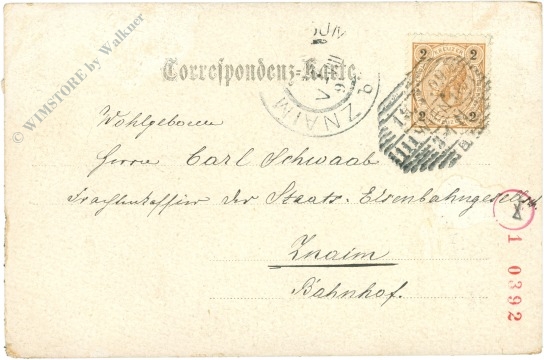 © WIMSTORE by Walkner
Correspondenz-Karte.
ZNAIM
2 KREUZER 2
2 2
Wohlgeboren
Herrn Carl Schwaab
Frachtenkassier der Staats-Eisenbahngesellsch.
Znaim
Bahnhof.
X
1 0392